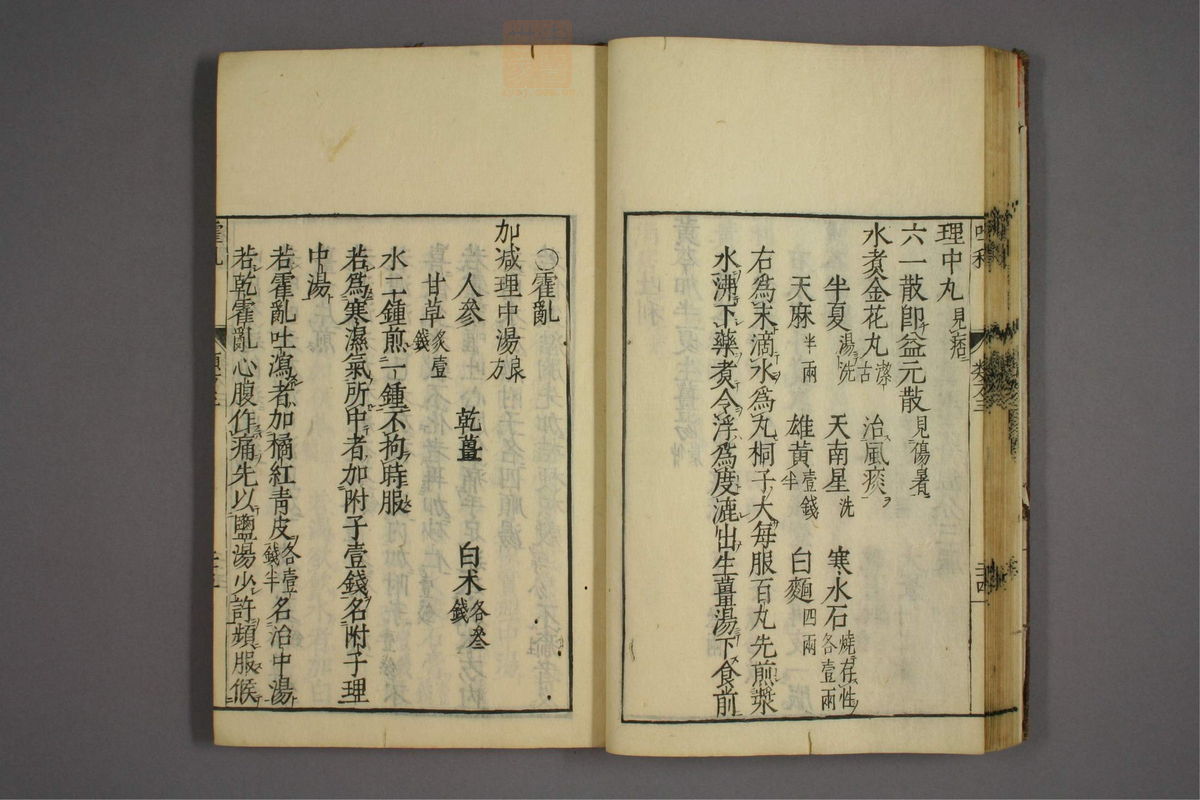 理中丸見痞
六一散即益元散見傷暑
水煑金花丸潔古 治風痰
半夏湯洗 天南星洗 寒水石燒存性各壹兩
天麻半兩 雄黄壹錢半 白麵四兩
右爲末滴水爲丸桐子大每服百丸先煎漿
水沸下藥煑令浮爲度漉出生薑湯下食前
〇霍亂
加减理中湯良方
人參 乾薑 白术各叄錢
甘草炙壹錢
水二鍾煎一鍾不拘時服
若爲寒濕氣所中者加附子壹錢名附子理
中湯
若霍亂吐瀉者加橘紅靑皮各壹錢半名治中湯
若乾霍亂心腹作痛先以鹽湯少許頻服候